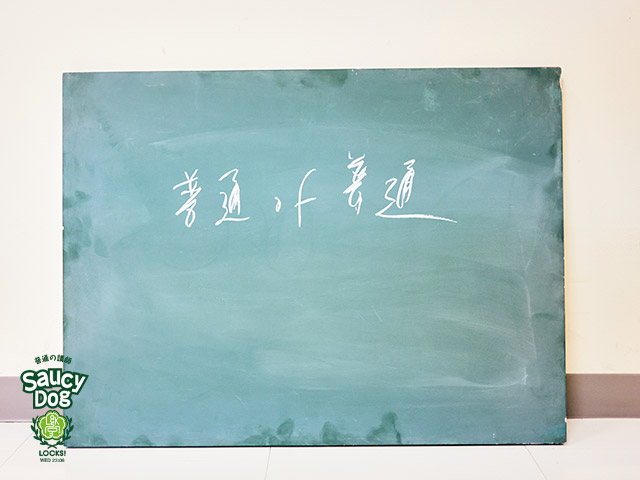 普通 of 普通
普通の講師
Saucy
Dog
LOCKS!
WED 23:08